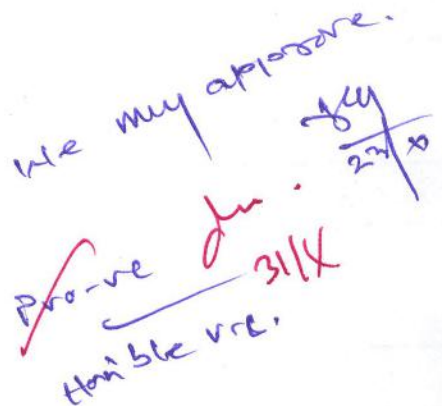 We may approve.
23/X
Pro-vc
31/X
Hon'ble v.c.